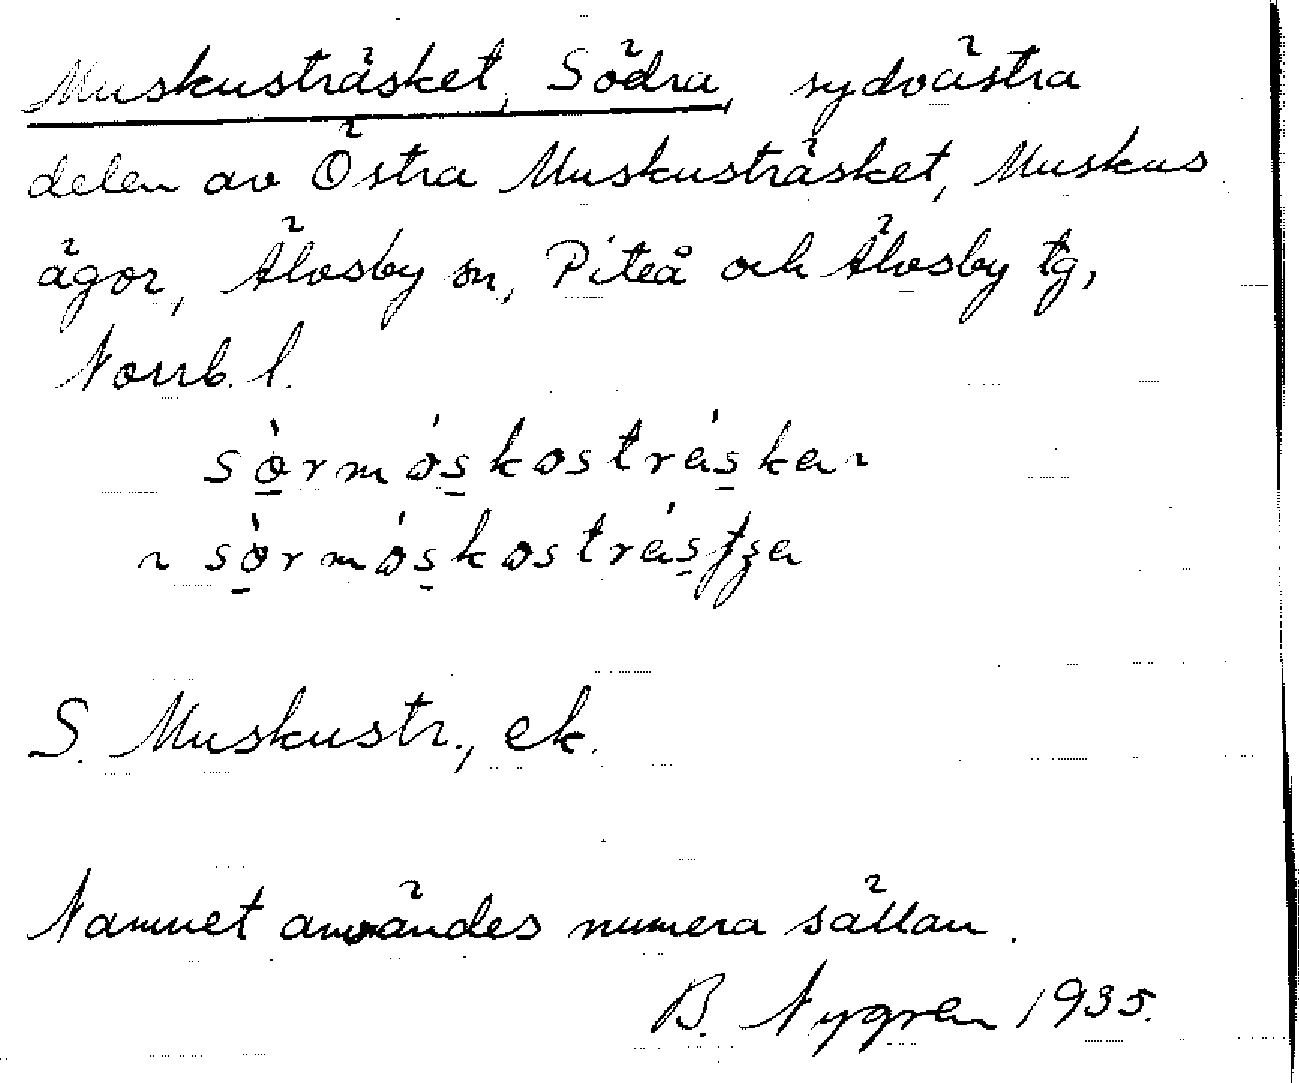 Muskusträsket, Södra, sydvästra
delen av Östra Muskusträsket, Muskus
ägor, Älvsby sn, Piteå och Älvsby tg,
Norrb. l.
sòrmóskostráska ~
~ sòrmóskostrásʄʒa
S. Muskustr., ek.
Namnet användes numera sällan.
B. Nygren 1935.